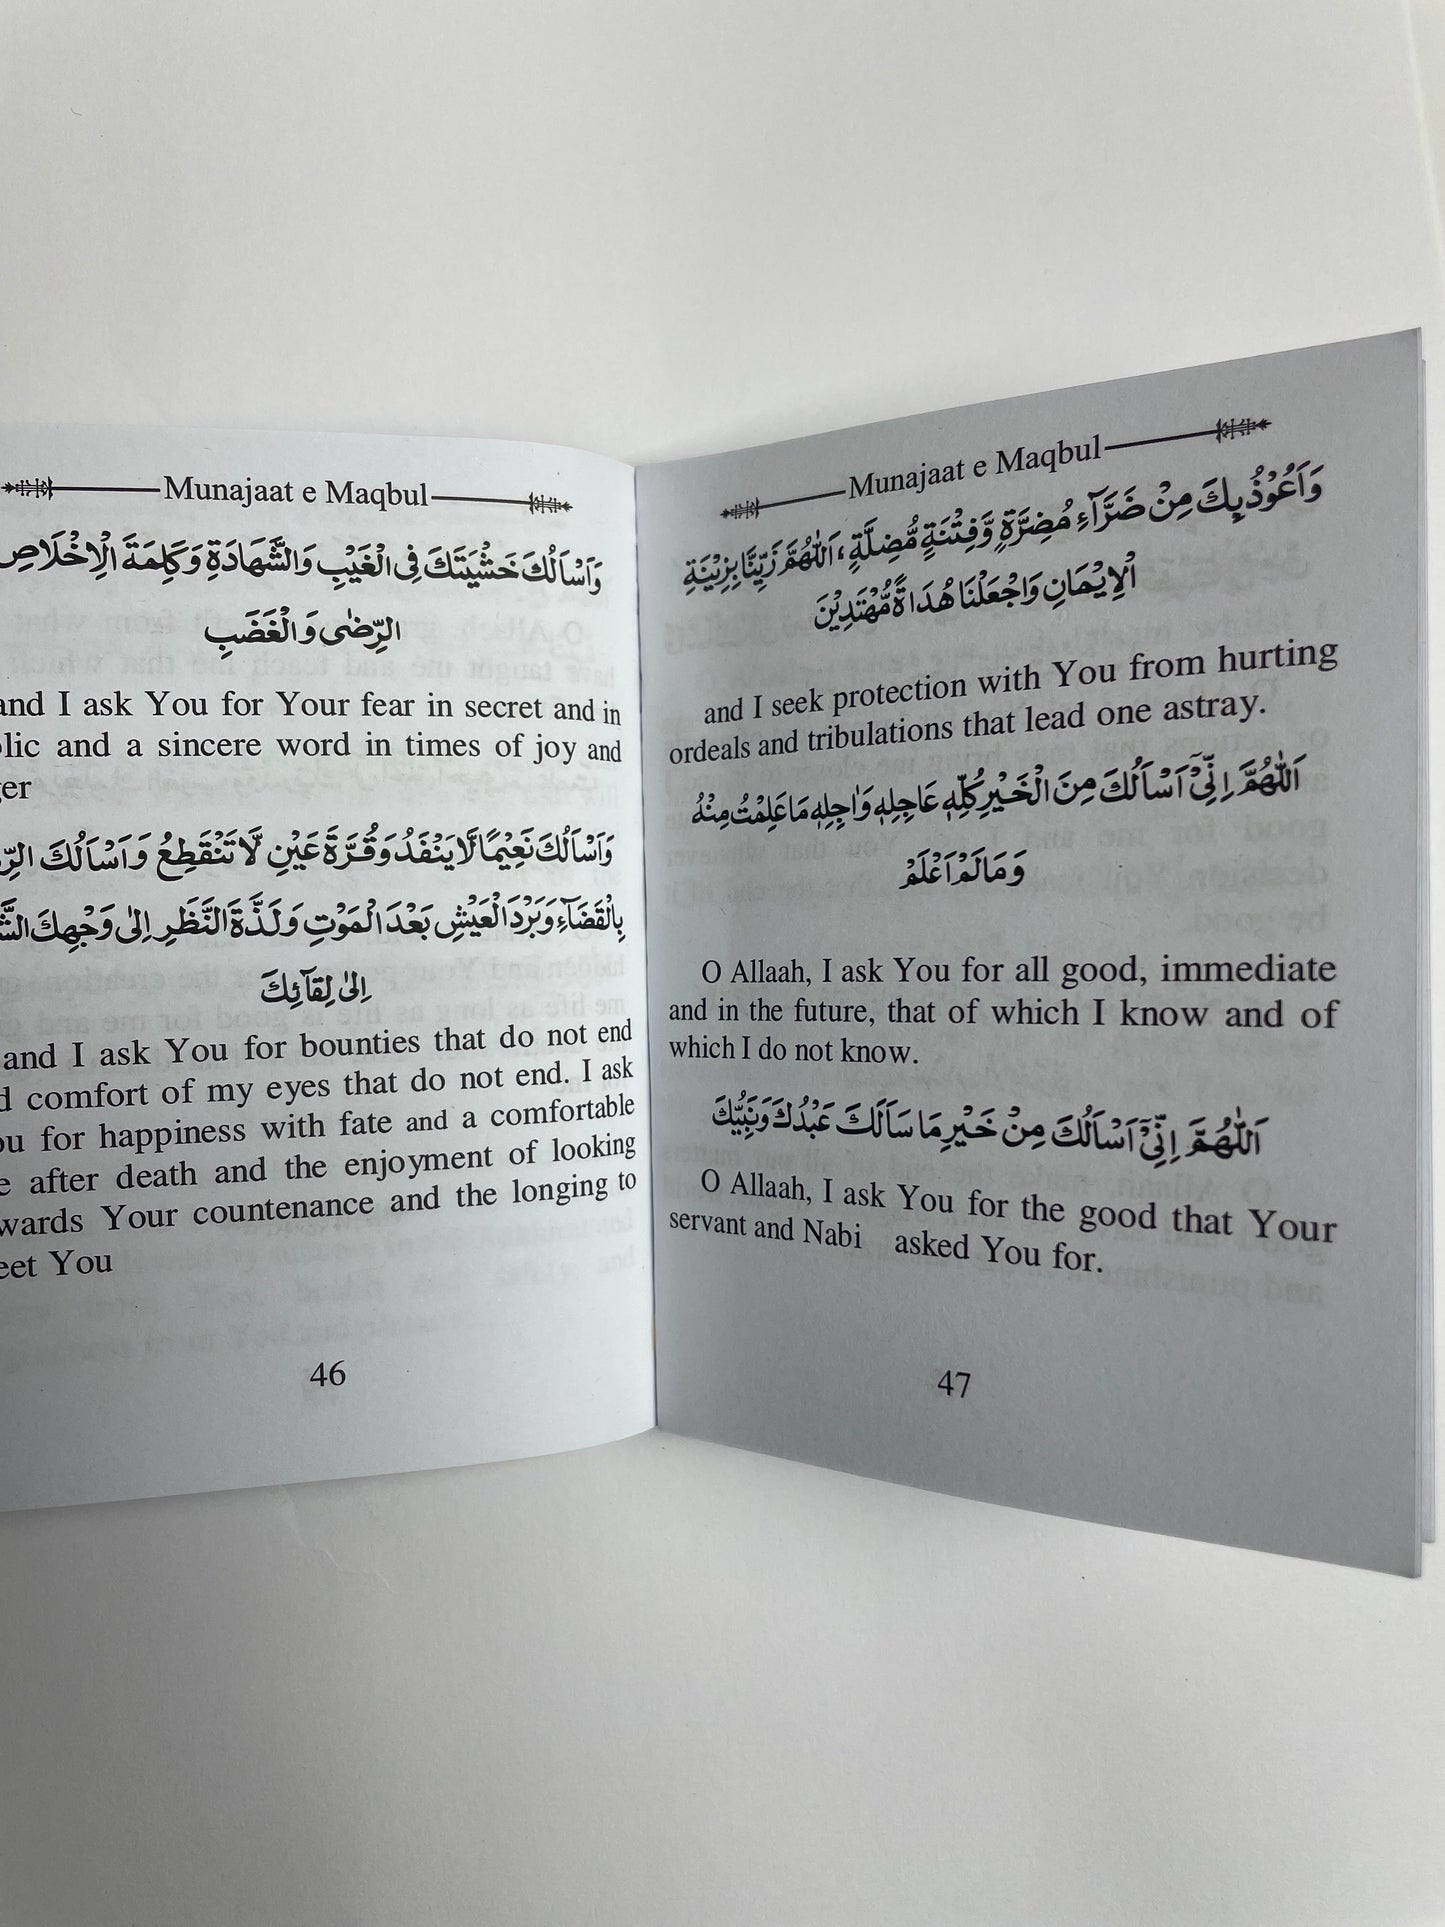 Munajaat e Maqbul
وَاَسْاَلُكَ خَشْيَتَكَ فِى الْغَيْبِ وَالشَّهَادَةِ وَكَلِمَةَ الْاِخْلَاصِ
الرِّضٰى وَالْغَضَبِ
and I ask You for Your fear in secret and in
and a sincere word in times of joy and
وَاَسْاَلُكَ نَعِيْمًا لَّا يَنْفَدُ وَقُرَّةَ عَيْنٍ لَّا تَنْقَطِعُ وَاَسْاَلُكَ
بِالْقَضَآءِ وَبَرْدَ الْعَيْشِ بَعْدَ الْمَوْتِ وَلَذَّةَ النَّظَرِ اِلٰى وَجْهِكَ
اِلٰى لِقَآئِكَ
and I ask You for bounties that do not end
comfort of my eyes that do not end. I ask
for happiness with fate and a comfortable
after death and the enjoyment of looking
Your countenance and the longing to
You
46
Munajaat e Maqbul
وَاَعُوْذُ بِكَ مِنْ ضَرَّآءِ مُضِرَّةٍ وَّفِتْنَةٍ مُّضِلَّةٍ، اَللّٰهُمَّ زَيِّنَّا بِزِيْنَةِ
الْاِيْمَانِ وَاجْعَلْنَا هُدَاةً مُّهْتَدِيْنَ
and I seek protection with You from hurting
ordeals and tribulations that lead one astray.
اَللّٰهُمَّ اِنِّىْٓ اَسْاَلُكَ مِنَ الْخَيْرِ كُلِّهٖ عَاجِلِهٖ وَاٰجِلِهٖ مَا عَلِمْتُ مِنْهُ
وَمَا لَمْ اَعْلَمْ
O Allaah, I ask You for all good, immediate
and in the future, that of which I know and of
which I do not know.
اَللّٰهُمَّ اِنِّىْٓ اَسْاَلُكَ مِنْ خَيْرِ مَا سَاَلَكَ عَبْدُكَ وَنَبِيُّكَ
O Allaah, I ask You for the good that Your
servant and Nabi asked You for.
47